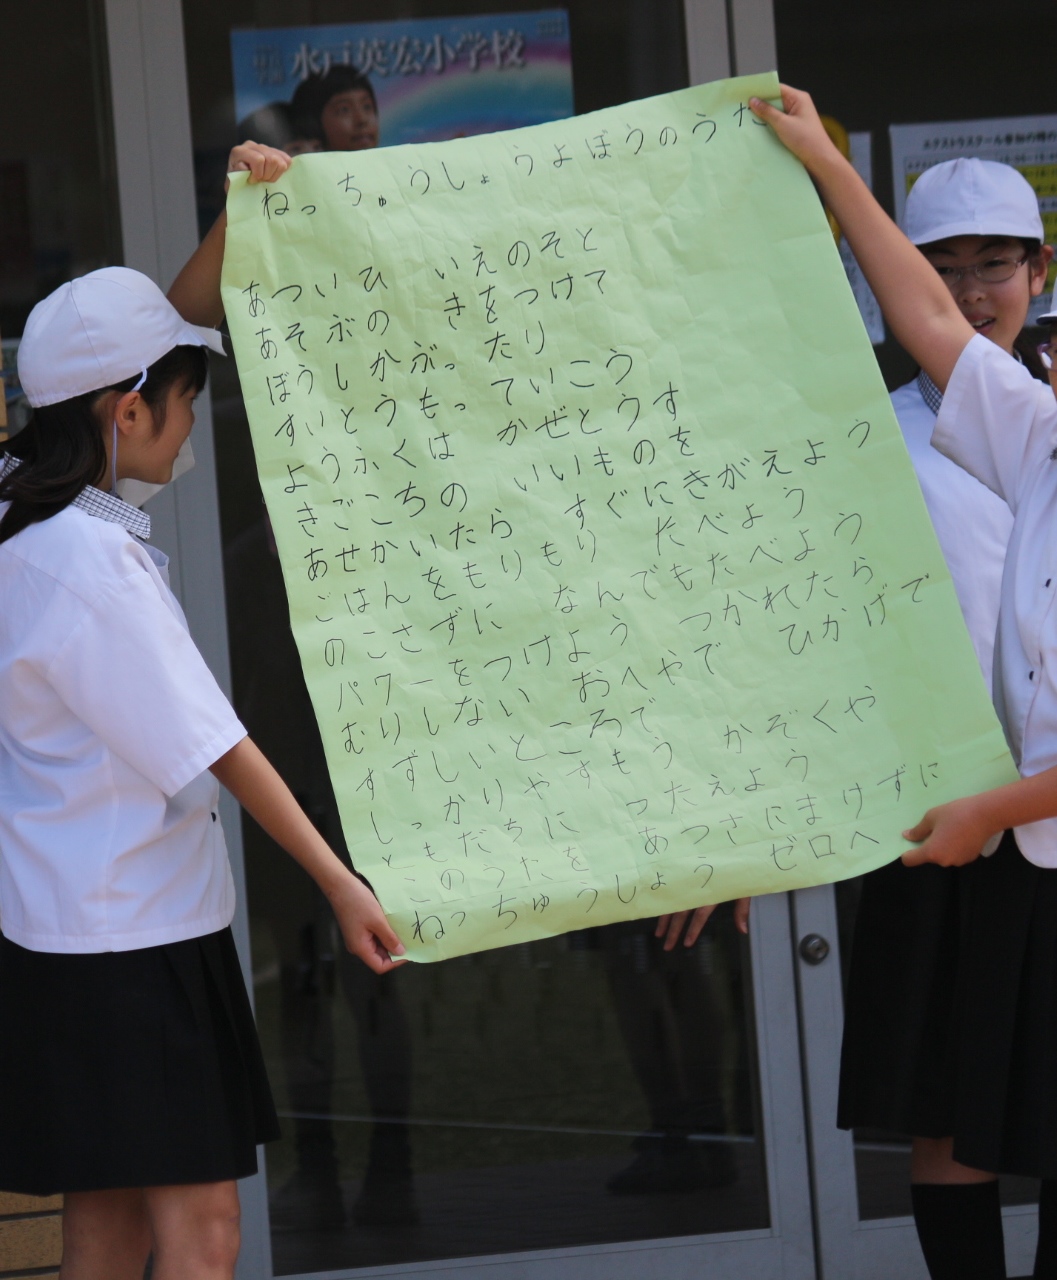 水戸英宏小学校
エクストラスクール参加の時の
ねっちゅうしょうよぼうのうた
あついひ いえのそと
あそぶの きをつけて
ぼうしかぶったり
すいとうもっていこう
ようふくは かぜとうす
きごこちの いいものを
あせかいたら すぐにきがえよう
ごはんをもりもり たべよう
のこさずに なんでもたべよう
パワーをつけよう つかれたら
むりしない おへやで ひかげで
すずしいところで
しっかりやすもう かぞくや
ともだちに つたえよう
このうたを あつさにまけずに
ねっちゅうしょう ゼロへ